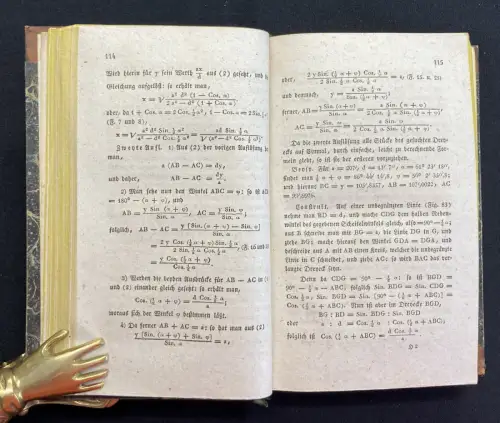 114
Wird hierin für y sein Werth sx/d aus (2) gesetzt, und die
Gleichung aufgelöst: so erhält man,
x = √ s² d² (1 — Cos. α) / 2 s² — d² (1 + Cos. α)
oder, da 1 + Cos. α = 2 Cos. ½α², 1 — Cos. α = 2 Sin. ½
(F. 7 und 8),
x = √ s² d² Sin. ½ α² / s² — d² Cos. ½ α² = sd Sin. ½ α / √ (s² — d² Cos. ½ α²).
Zweyte Aufl. 1) Aus (2) der vorigen Auflösung
man,
s (AB — AC) = dy,
und daher, AB — AC = dy/s.
2) Man setze nun den Winkel ABC = φ; so ist
= 180° — (α + φ), und
AB = y Sin (α + φ) / Sin. α, AC = y Sin. φ / Sin. α;
folglich, AB — AC = y [Sin. (α + φ) — Sin. φ] / Sin. α
= 2 y Cos. (½ α + φ) Sin. ½ α / 2 Sin. ½ α Cos. ½ α, (F. 15
= y Cos. (½ α + φ) / Cos. ½ α.
3) Werden die beyden Ausdrücke für AB — AC in (1)
und (2) einander gleich gesetzt; so erhält man,
Cos. (½ α + φ) = d Cos. ½ α / s;
woraus sich der Winkel φ bestimmen läßt.
4) Da ferner AB + AC = s: so hat man aus (2)
y [Sin. (α + φ) + Sin. φ] / Sin. α = s,
115
oder, 2 y Sin. (½ α + φ) Cos. ½ α / 2 Sin. ½ α Cos. ½ α = s, (F. 15. n. 21)
und demnach, y = s Sin. ½ α / Sin. (½ α + φ);
ferner, AB = y Sin. (α + φ) / Sin. α = s Sin. (α + φ) / 2 Cos. ½ α Sin. (½ α + φ),
AC = y Sin. φ / Sin. α = s Sin. φ / 2 Cos. ½ α Sin. (½ α + φ).
Da die zweyte Auflösung alle Stücke des gesuchten Drey-
ecks auf Einmal, durch einfache, leicht zu berechnende For-
meln giebt, so ist sie der ersteren vorzuziehen.
und hieraus BC = y =
Construkt. Auf einer unbegränzten Linie (Fig. 83)
nehme man BD = d, und mache CDG dem halben Neben-
winkel des gegebenen Scheitelwinkels gleich, also = 90° — ½ α;
aus B schneide man mit BG = s, die Linie DG in G, und
ziehe BG; mache hieraus den Winkel GDA = DGA, und
beschreibe aus A mit AB einen Kreis, welcher die unbegränzte
Linie in C schneidet, und ziehe AC; so wird BAC das ver-
langte Dreyeck seyn.
Denn da CDG = 90° — ½ α: so ist BGD =
90° — (½ α + ABC); folglich Sin. BDG = Sin. CDG =
Cos. ½ α, Sin. BGD = Sin. [90° — (½ α + ABC)] =
Cos. (½ α + ABC). Nun ist aber im Dreyeck BGD,
BG : BD = Sin. BDG : Sin. BGD
oder s : d = Cos. ½ α : Cos. (½ α + ABC);
folglich ist Cos (½ α + ABC) = d Cos. ½ α / s.